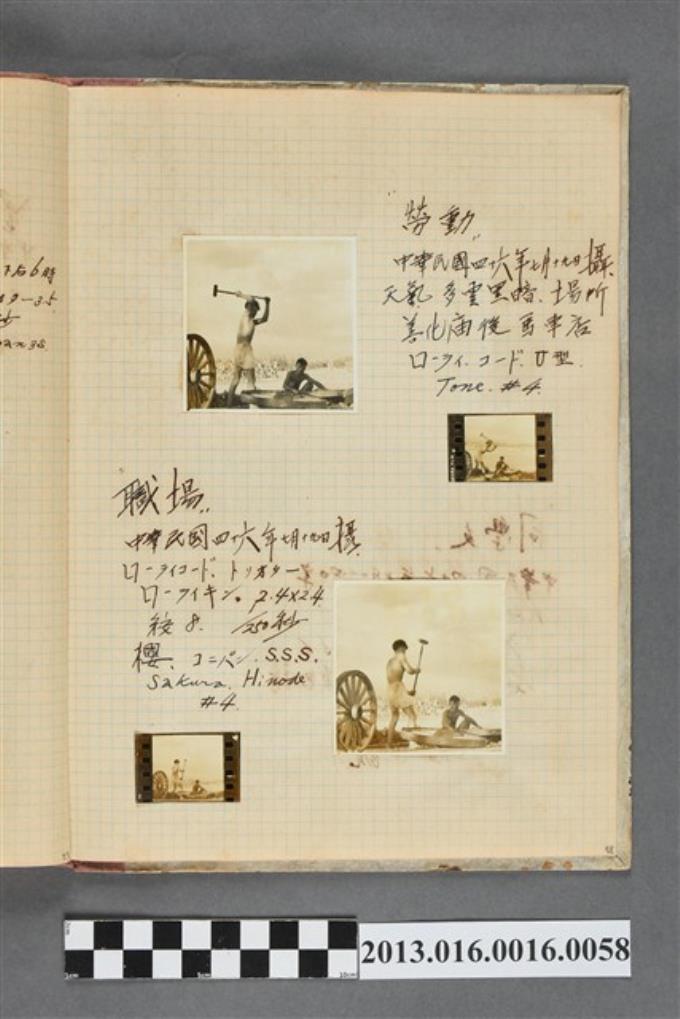 下后6時
"勞動"
中華民國四十六年七月十九日攝.
天氣 多雲黑暗. 場所
善化庙後 馬車店
ローライ.コード.U型.
Tone. #4.
"職場"
中華民國四十六年七月十九日攝.
ローライコード.トリオター
ローライキン. 2.4×2.4
絞8. 1/250秒
櫻. コニパン. S.S.S.
Sakura. Hinode
#4.
2013.016.0016.0058